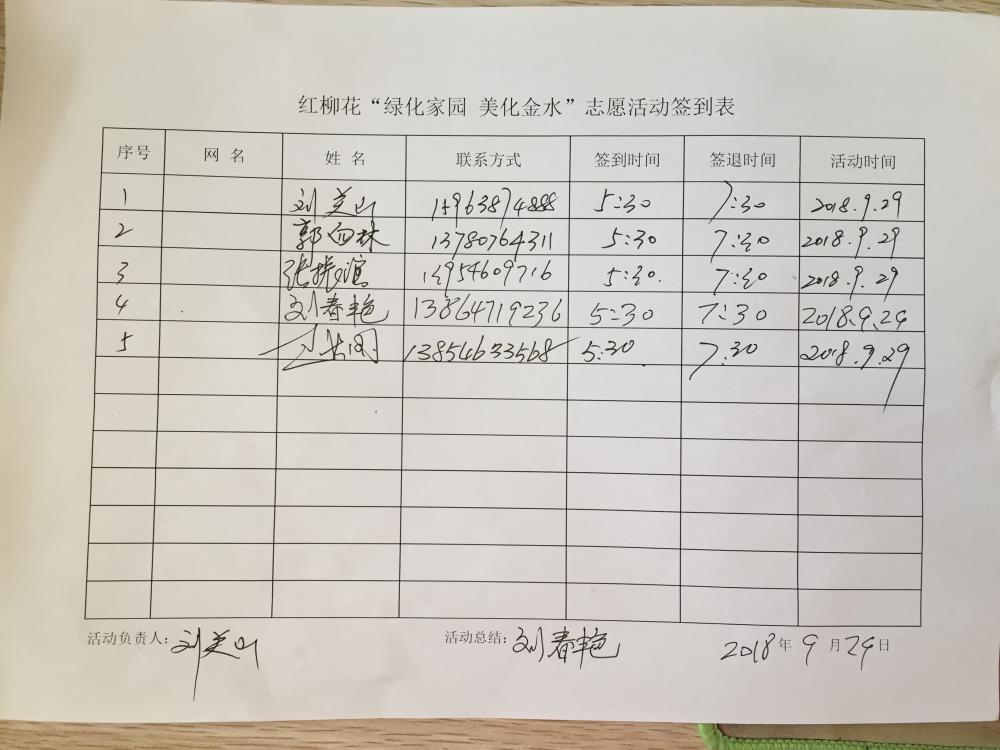 红柳花“绿化家园 美化金水”志愿活动签到表
序号 网 名 姓 名 联系方式 签到时间 签退时间 活动时间
1 刘美山 5:30 7:30 2018.9.29
2 郭向林 13780764311 5:30 7:30 2018.9.29
3 5:30. 7:30 2018.9.29
4 刘春艳 13864719236 5:30 7:30 2018.9.29
5 13854633568 5:30 7:30 2018.9.29
活动负责人: 刘美山 活动总结: 刘春艳 2018年9月29日